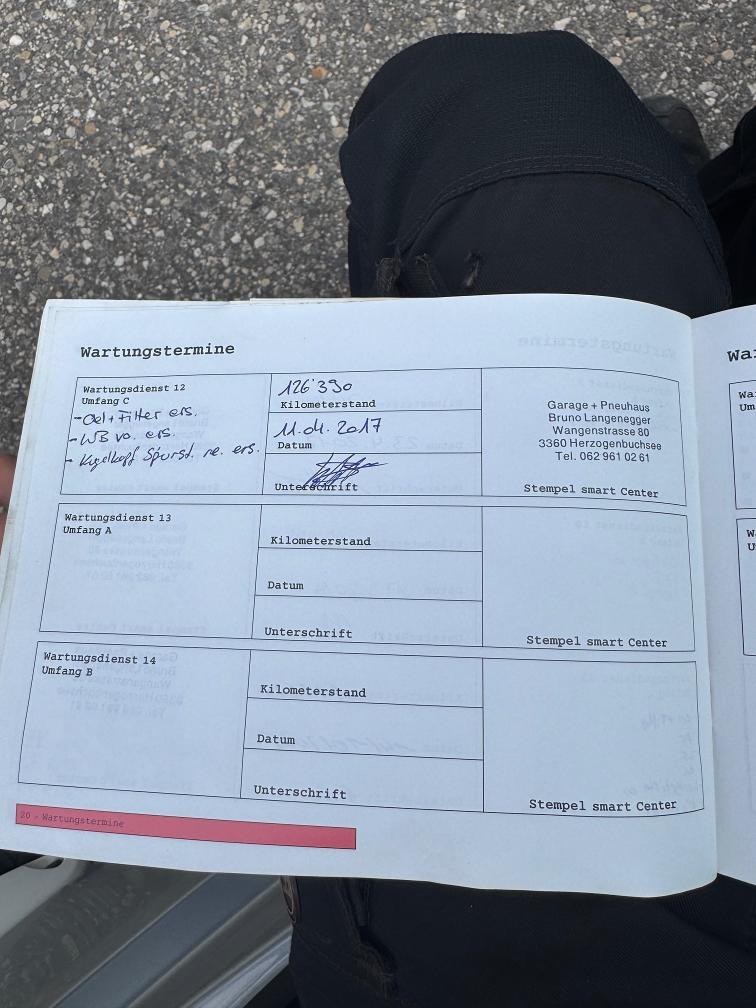 Wartungstermine
Wartungsdienst 12
Umfang C
- Oel + Filter ers.
- WB vo. ers.
- Kugelkopf Spurst. re. ers.
126'390
Kilometerstand
11.04.2017
Datum
Unterschrift
Garage + Pneuhaus
Bruno Langenegger
Wangenstrasse 80
3360 Herzogenbuchsee
Tel. 062 961 02 61
Stempel smart Center
Wartungsdienst 13
Umfang A
Kilometerstand
Datum
Unterschrift
Stempel smart Center
Wartungsdienst 14
Umfang B
Kilometerstand
Datum
Unterschrift
Stempel smart Center
20 - Wartungstermine